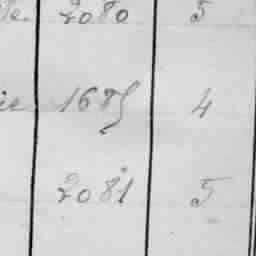 le. 2080 5
ie 1685 4
2081 5